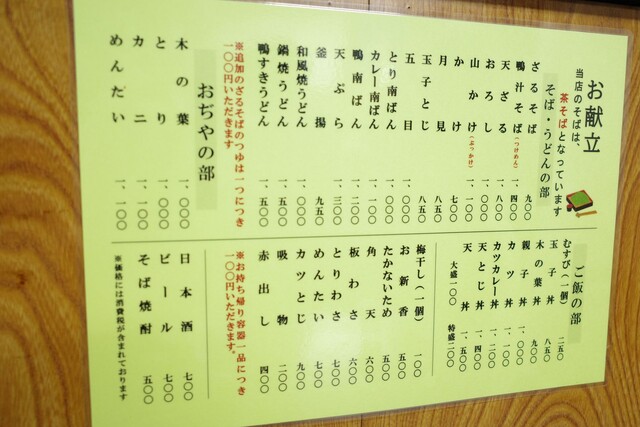 お献立
当店のそばは、
茶そばとなっています
そば・うどんの部
ざるそば 九〇〇
鴨汁そば(つけめん) 一、四〇〇
天ざる 一、八〇〇
おろし 一、〇〇〇
山かけ(ぶっかけ) 一、一〇〇
かけ 七〇〇
月見 八五〇
玉子とじ 八五〇
五目 一、〇〇〇
とり南ばん 一、〇〇〇
カレー南ばん 一、一〇〇
鴨南ばん 一、二〇〇
天ぷら 一、三〇〇
釜揚 九五〇
和風焼うどん 一、〇〇〇
鍋焼うどん 一、五〇〇
鴨すきうどん 一、五〇〇
※追加のざるそばのつゆは一つにつき
一〇〇円いただきます
おぢやの部
木の葉 一、〇〇〇
とり 一、〇〇〇
カニ 一、一〇〇
めんたい 一、一〇〇
ご飯の部
むすび(一個) 二五〇
玉子丼 八五〇
木の葉丼 九〇〇
親子丼 一、〇〇〇
カツ丼 一、一〇〇
カツカレー丼 一、二〇〇
天とじ丼 一、四〇〇
天丼 一、五〇〇
大盛一〇〇 特盛二〇〇
梅干し(一個) 一〇〇
お新香 五〇〇
たかないため 五〇〇
角天 六〇〇
板わさ 六〇〇
とりわさ 七〇〇
めんたい 七〇〇
カツとじ 九〇〇
吸物 二〇〇
赤出し 四〇〇
※お持ち帰り容器一品につき
一〇〇円いただきます。
日本酒 七〇〇
ビール 七〇〇
そば焼酎 五〇〇
※価格には消費税が含まれております